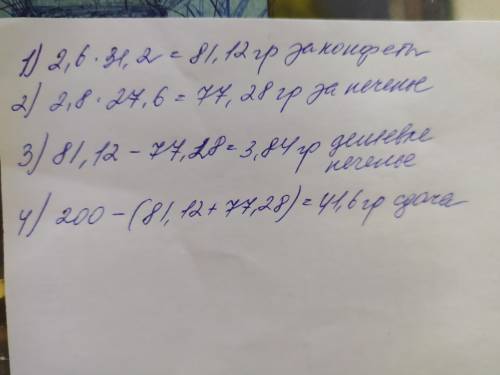 1) 2,6 · 31,2 = 81,12 гр за конфеты
2) 2,8 · 27,6 = 77,28 гр за печенье
3) 81,12 - 77,28 = 3,84 гр дешевле
печенье
4) 200 - (81,12 + 77,28) = 41,6 гр сдача